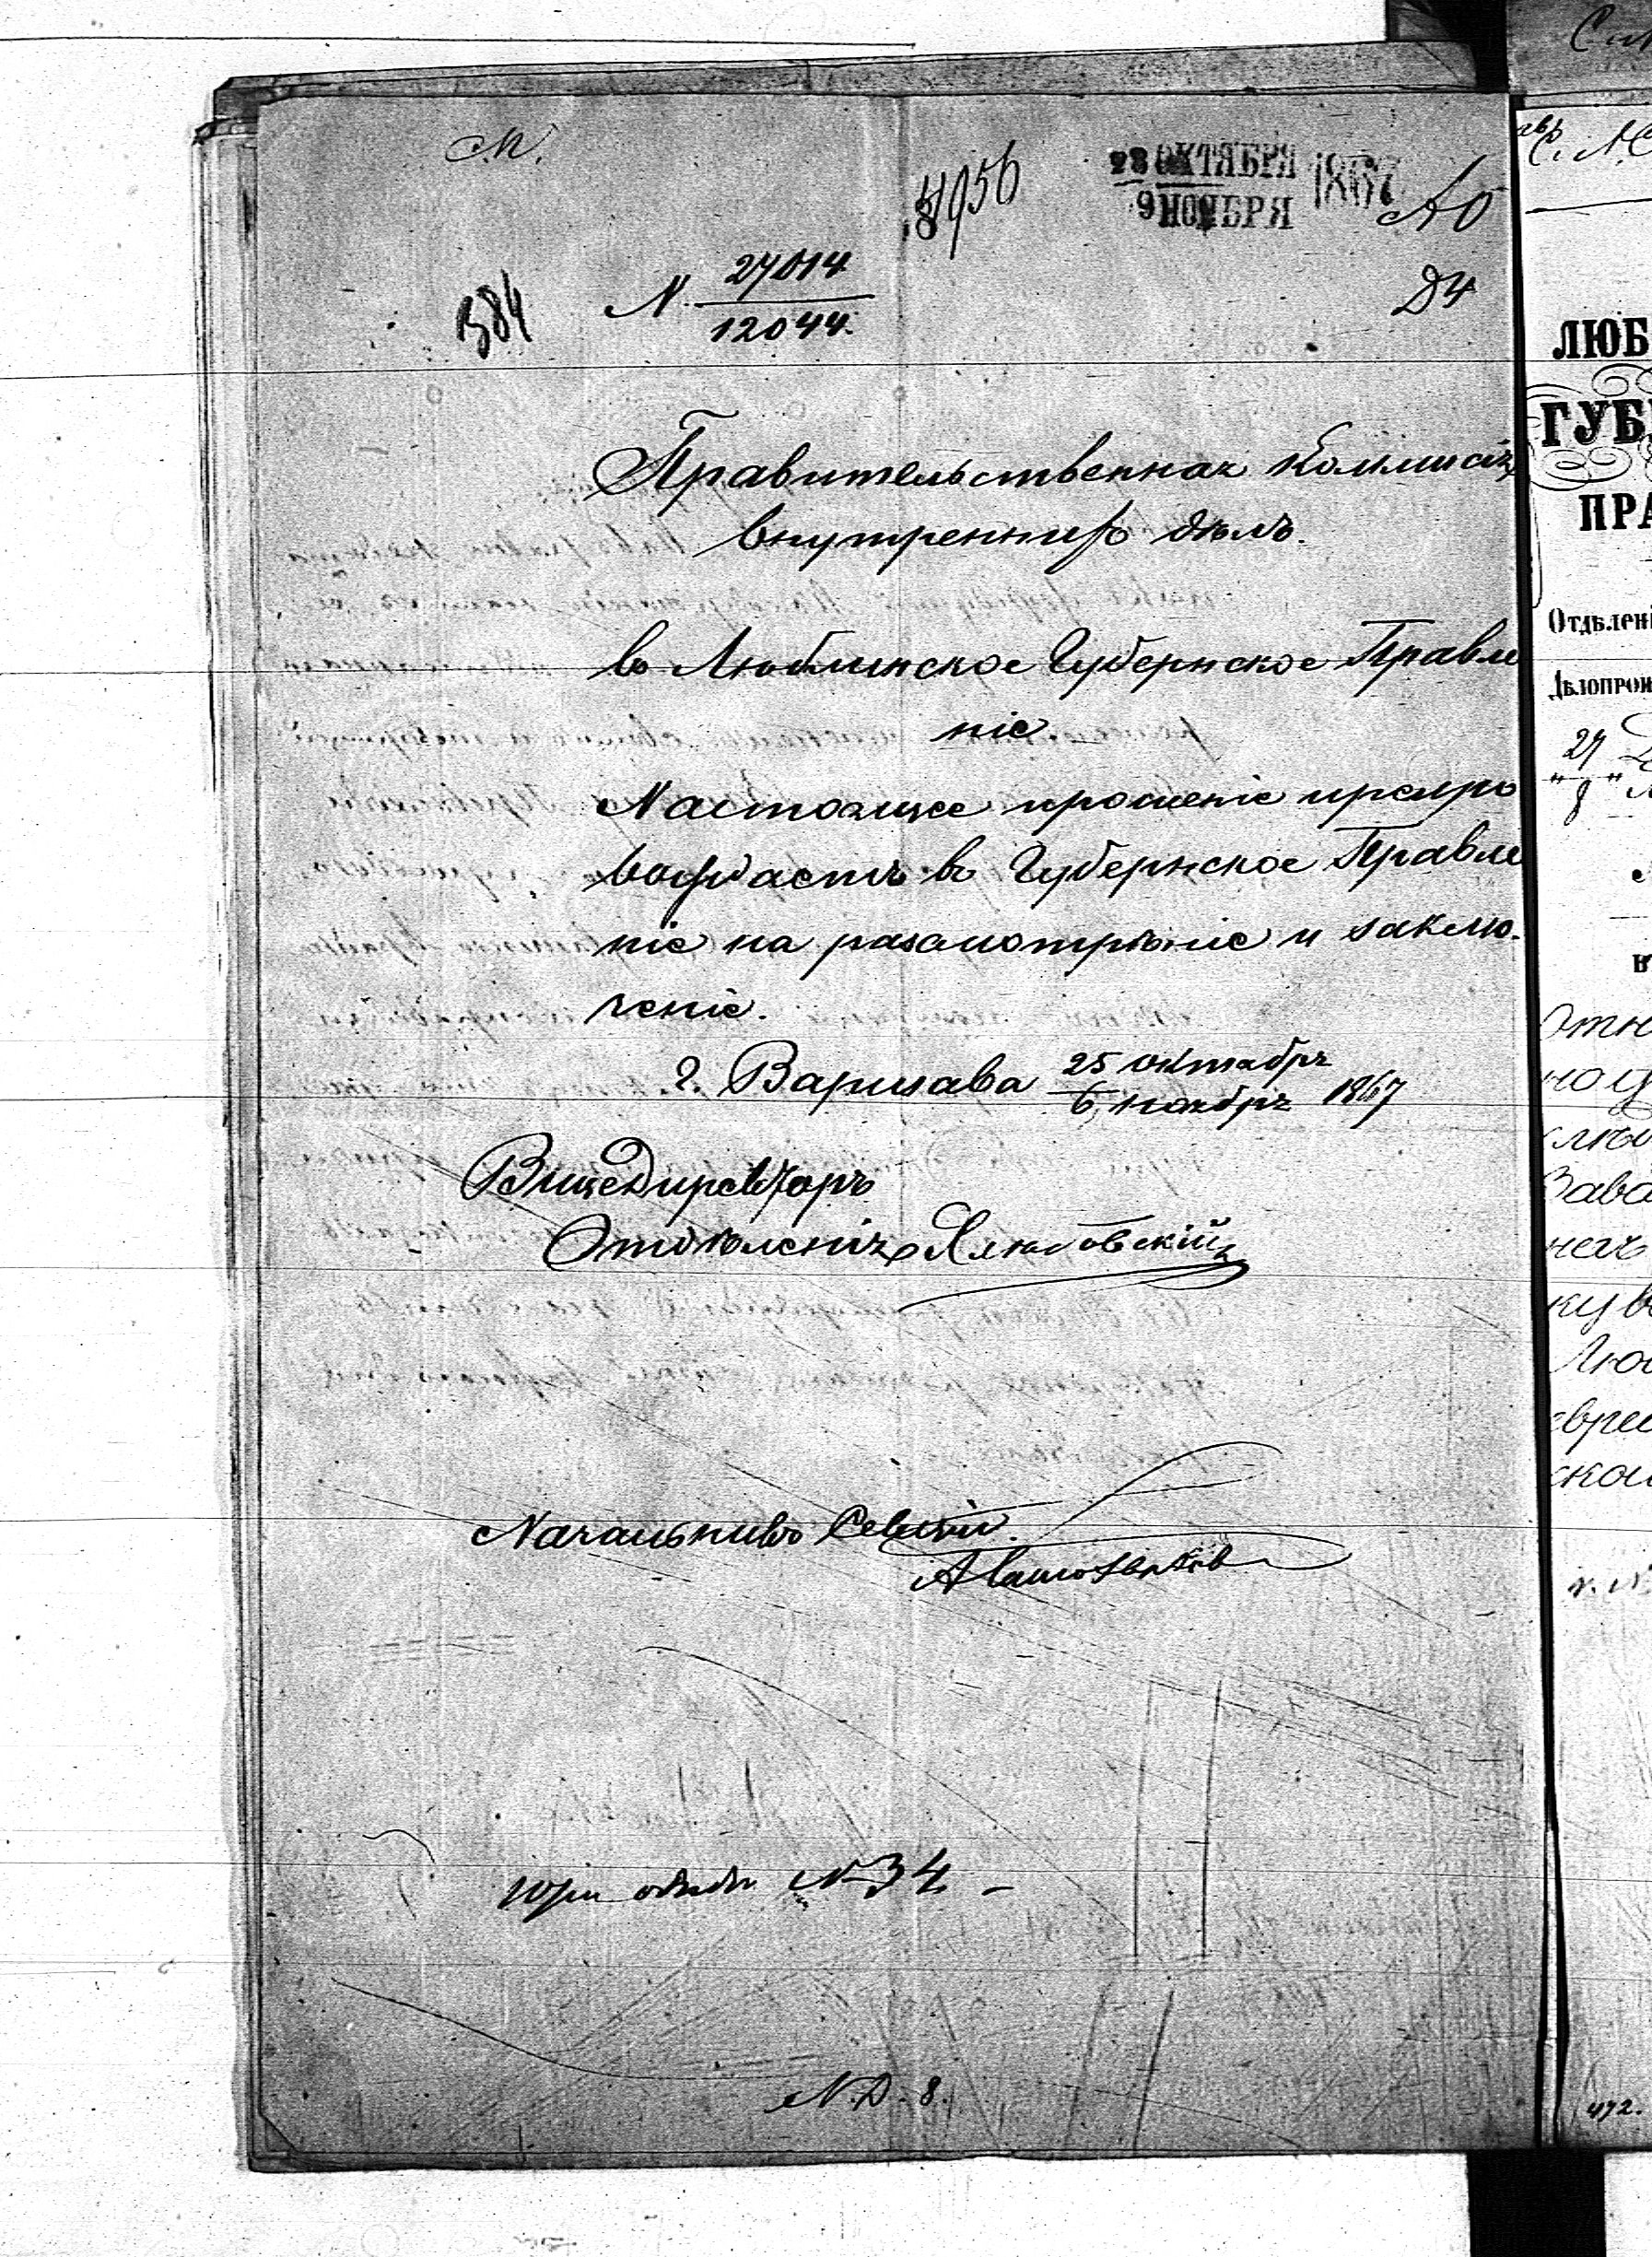 М.
4956
28 ОКТЯБРЯ 1867
9 НОЯБРЯ
АО
384
N. 27014
12044.
Д4
Правительственная Коммисія
внутреннихъ дѣлъ.
въ Люблинское Губернское Правле
ніе
Настоящее прошеніе препро
вождаетъ въ Губернское Правле
ніе на разсмотрѣніе и заклю-
ченіе.
г. Варшава 25 октября
6 ноября 1867
Вице Директоръ
Отдѣленія
Начальникъ Секціи.
N 34
N. Д. 8.
ЛЮБ
ГУБ
ПРА
Отдѣлені
Дѣлопрои
27
8
Зава
Лю
евре
ско
472.